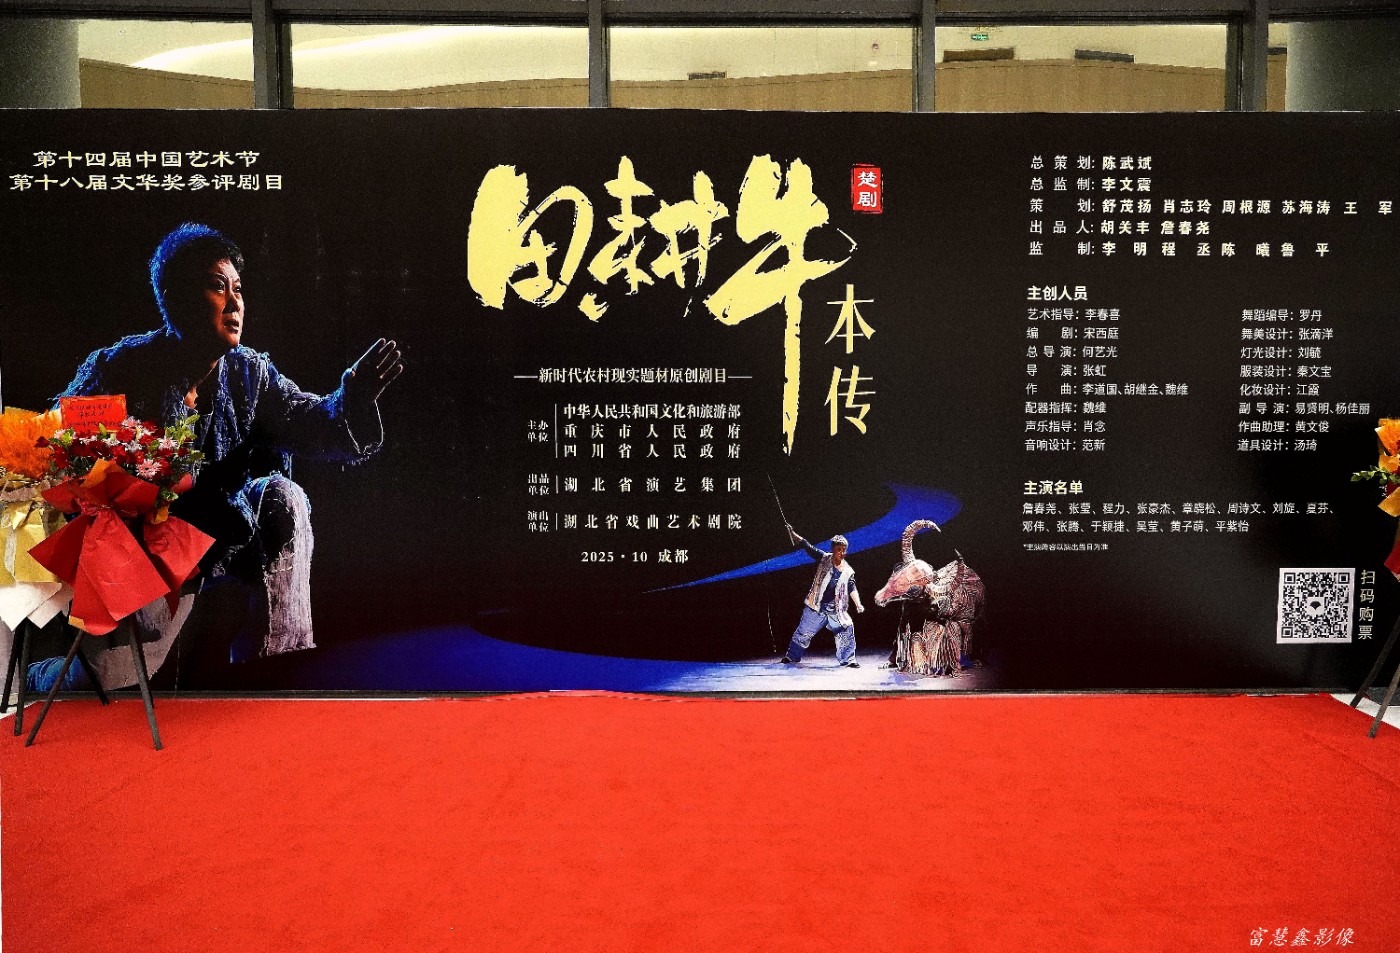 第十四届中国艺术节
第十八届文华奖参评剧目
田耕牛
楚剧
本传
新时代农村现实题材原创剧目
主办单位
中华人民共和国文化和旅游部
重庆市人民政府
四川省人民政府
出品单位
湖北省演艺集团
演出单位
湖北省戏曲艺术剧院
2025·10 成都
总策划: 陈武斌
总监制: 李文震
策划: 舒茂扬 肖志玲 周根源 苏海涛 王军
出品人: 胡关丰 詹春尧
监制: 李明 程丞 陈曦 鲁平
主创人员
艺术指导: 李春喜
编剧: 宋西庭
总导演: 何艺光
导演: 张虹
作曲: 李道国、胡继金、魏维
配器指挥: 魏维
声乐指导: 肖念
音响设计: 范新
舞蹈编导: 罗丹
舞美设计: 张滴洋
灯光设计: 刘毓
服装设计: 秦文宝
化妆设计: 江霞
副导演: 易贤明、杨佳丽
作曲助理: 黄文俊
道具设计: 汤琦
主演名单
詹春尧、张莹、程力、张豪杰、章晓松、周诗文、刘旋、夏芬、
邓伟、张腾、于颖捷、吴莹、黄子萌、平紫怡
*主演阵容以演出当日为准
扫码购票
富慧鑫影像